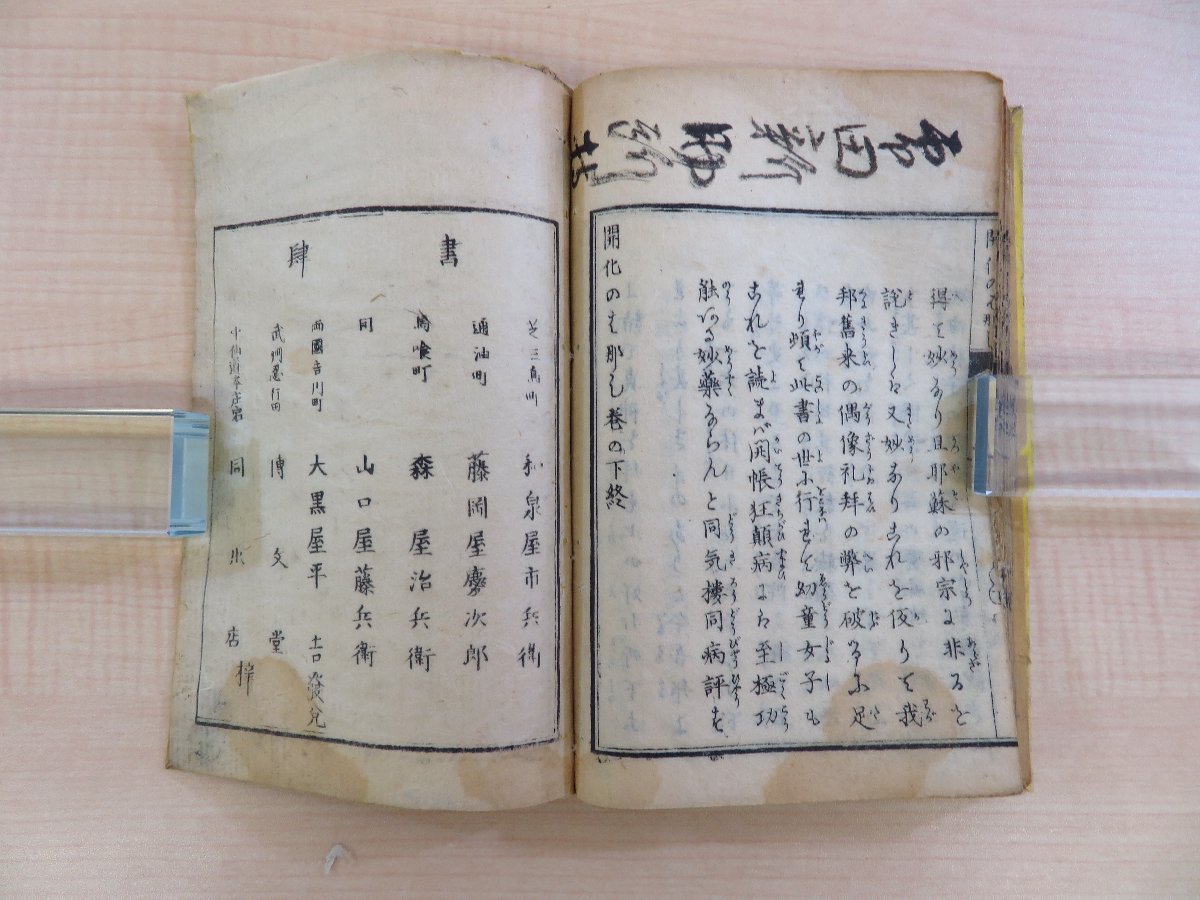 得て妙なり且耶蘇の邪宗に非るを
説きしは又妙なりこれを仮りて我
邦舊来の偶像礼拜の弊を破るに足
れり頻に此書の世に行れて幼童女子も
これを読まば開帳狂顛病には至極功
能ある妙藥ならんと同気楼同病評す
開化のはなし巻の下終
書肆
芝三島町 和泉屋市兵衛
通油町 藤岡屋慶次郎
馬喰町 森屋治兵衛
同 山口屋藤兵衛
両國吉川町 大黒屋平吉 發兌
武州忍行田 博文堂
同出店 梓